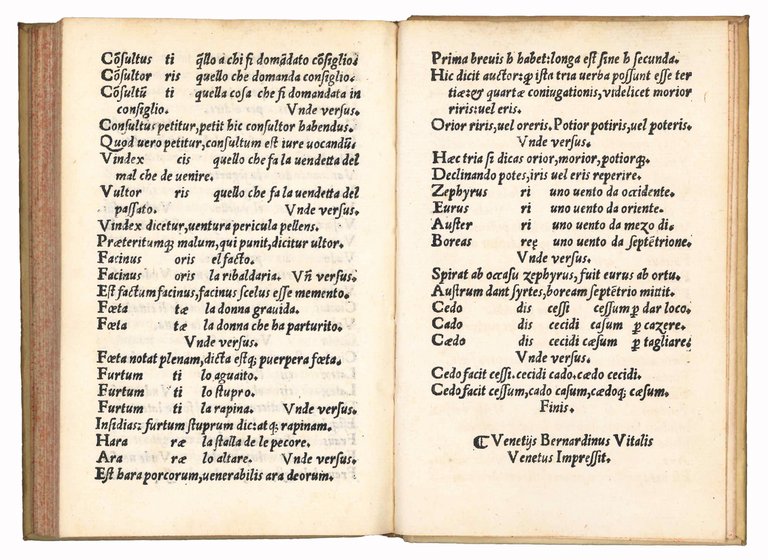 Cōsultus ti q̄llo a chi si domādato cōsiglio.
Cōsultor ris quello che domanda consiglio.
Cōsultū ti quella cosa che si domandata in
consiglio. Vnde versus.
Consultus petitur, petit hic consultor habendus.
Quod uero petitur, consultum est iure uocandū.
Vindex cis quello che fa la uendetta del
mal che de uenire.
Vultor ris quello che fa la uendetta del
passato. Vnde versus.
Vindex dicetur, uentura pericula pellens.
Præteritumq; malum, qui punit, dicitur ultor.
Facinus oris el facto.
Facinus oris la ribaldaria. Vn̄ versus.
Est factum facinus, facinus scelus esse memento.
Fœta tæ la donna grauida.
Fœta tæ la donna che ha parturito.
Vnde versus.
Fœta notat plenam, dicta estq; puerpera fœta.
Furtum ti lo aguaito.
Furtum ti lo stupro.
Furtum ti la rapina. Vnde versus.
Insidias: furtum stuprum dic: atq; rapinam.
Hara ræ la stalla de le pecore.
Ara ræ lo altare. Vnde versus.
Est hara porcorum, uenerabilis ara deorum.
Prima breuis h habet: longa est sine h secunda.
Hic dicit auctor: ꝙ ista tria uerba possunt esse ter
tiæꝫ quartæ coniugationis, videlicet morior
riris: uel eris.
Orior riris, uel oreris. Potior potiris, uel poteris.
Vnde versus.
Hæc tria si dicas orior, morior, potiorq;.
Declinando potes, iris uel eris reperire.
Zephyrus ri uno uento da occidente.
Eurus ri uno uento da oriente.
Auster ri uno uento da mezo di.
Boreas reę uno uento da septētrione.
Vnde versus.
Spirat ab occasu zephyrus, fuit eurus ab ortu.
Austrum dant syrtes, boream septētrio mittit.
Cedo dis cessi cessum ꝑ dar loco.
Cado dis cecidi casum ꝑ cazere.
Cædo dis cecidi cæsum ꝑ tagliare.
Vnde versus.
Cedo facit cessi. cecidi cado. cædo cecidi.
Cedo facit cessum, cado casum, cædoq; cæsum.
Finis.
¶ Venetijs Bernardinus Vitalis
Venetus Impressit.